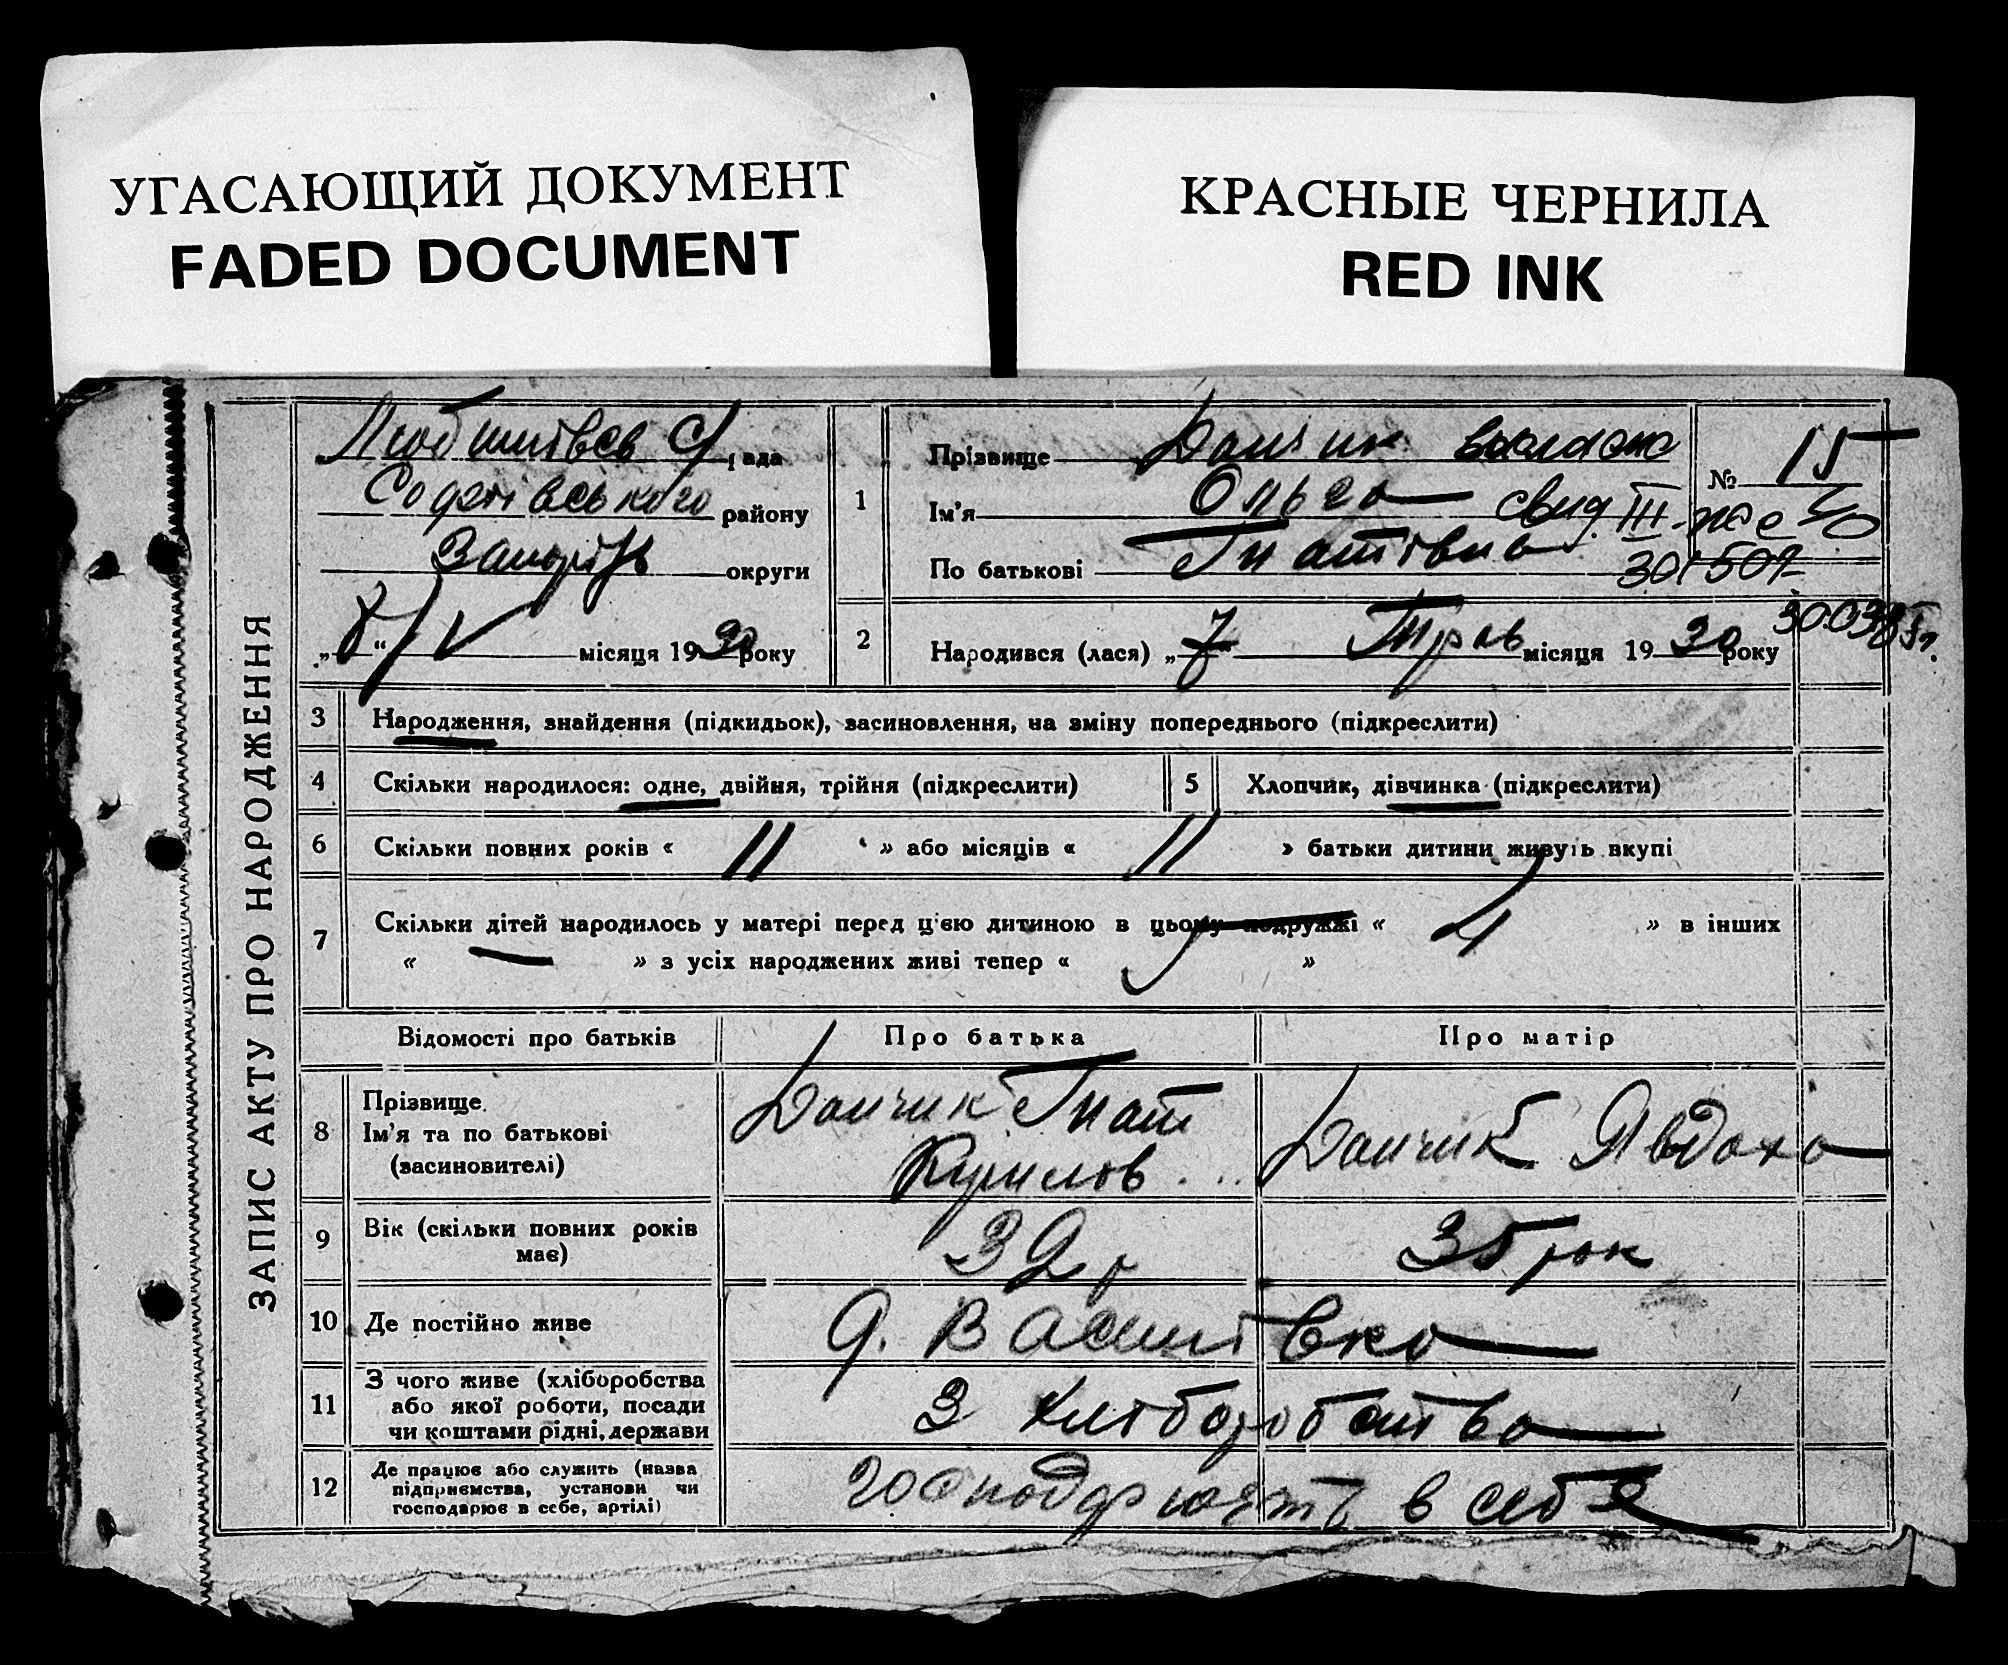 УГАСАЮЩИЙ ДОКУМЕНТ
FADED DOCUMENT
КРАСНЫЕ ЧЕРНИЛА
RED INK
ЗАПИС АКТУ ПРО НАРОДЖЕННЯ
рада
району
Запоріз округи
„ “ V місяця 1930 року
1
Прізвище Данчик
Ім'я Ольга свид. III-
По батькові Гнатівна
№ 15
2
Народився (лася) „7 Трав місяця 1930 року
3 Народження, знайдення (підкидьок), васиновлення, на зміну попереднього (підкреслити)
4 Скільки народилося: одне, двійня, трійня (підкреслити)
5 Хлопчик, дівчинка (підкреслити)
6 Скільки повних років « 11 » або місяців « 11 » батьки дитини живуть вкупі
7 Скільки дітей народилось у матері перед цією дитиною в цьому подружжі « 4 » в інших
« — » з усіх народжених живі тепер « »
Відомості про батьків Про батька Про матір
8 Прізвище
Ім'я та по батькові
(васиновителі)
Данчик Гнат
Курилов
Данчик Явдоха
9 Вік (скільки повних років має)
32 р
35 рок
10 Де постійно живе
Васинівка
11 З чого живе (хліборобства
або якої роботи, посади
чи коштами рідні, держави
З хліборобства
12 Де працює або служить (назва
підприємства, установи чи
господарює в себе, артілі)
господарюють в себе